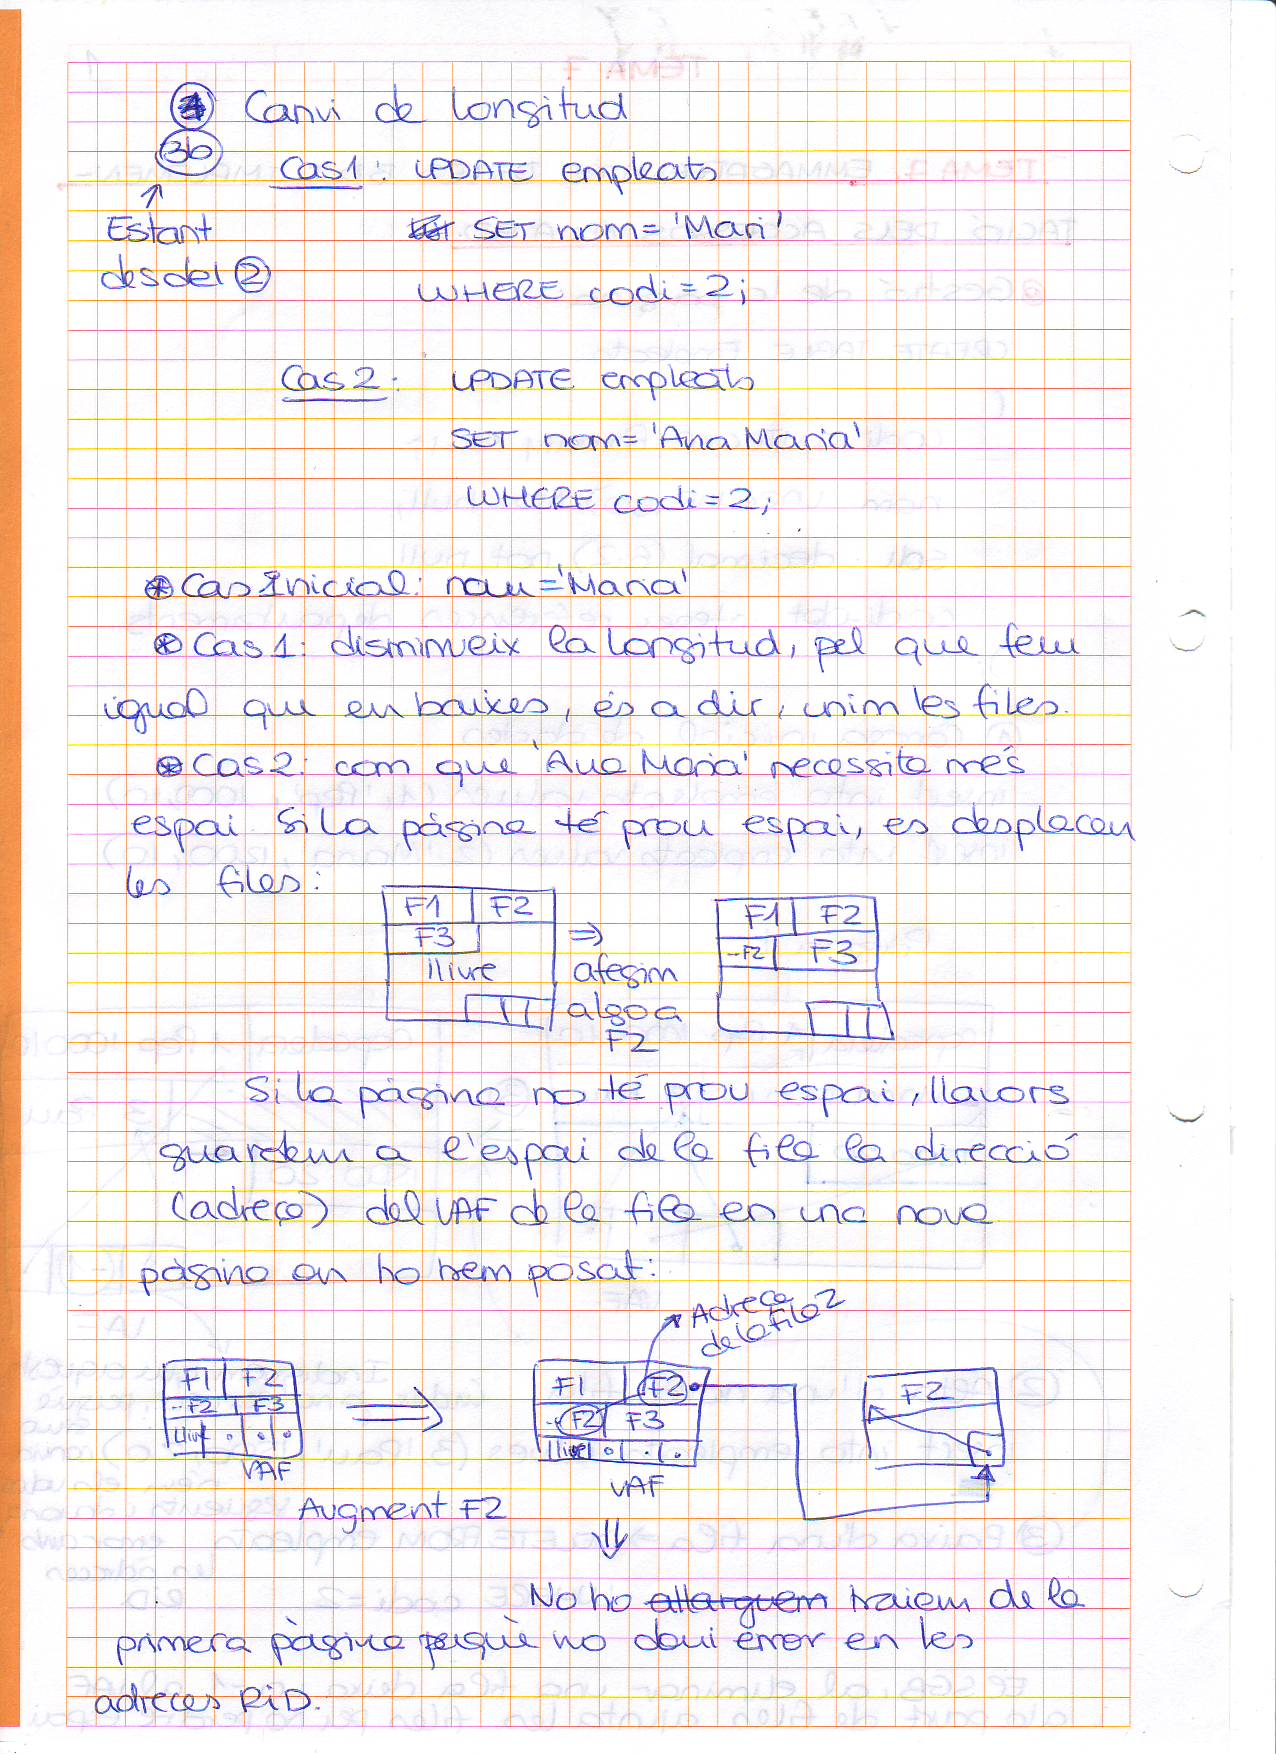 3b Canvi de longitud
Cas1: UPDATE empleats
SET nom='Mari'
WHERE codi=2;
Estant
desdel 2
Cas2: UPDATE empleats
SET nom='Ana Maria'
WHERE codi=2;
Cas Inicial: nom='Maria'
Cas1: disminueix la longitud, pel que fem
igual que en baixes, és a dir, unim les files.
Cas2: com que 'Ana Maria' necessita més
espai. Si la pàgina té prou espai, es desplacen
les files:
F1 F2
F3
lliure
⇒
afegim
algo a
F2
F1 F2
--F2 F3
Si la pàgina no té prou espai, llavors
guardem a l'espai de la fila la direcció
(adreça) del VAF de la fila en una nova
pàgina on ho hem posat:
Adreça
de la fila 2
F1 F2
--F2 F3
Lliure
VAF
Augment F2
F1 F2
--F2 F3
lliure
VAF
F2
No ho allarguem traiem de la
primera pàgina perquè no doni error en les
adreces RiD.